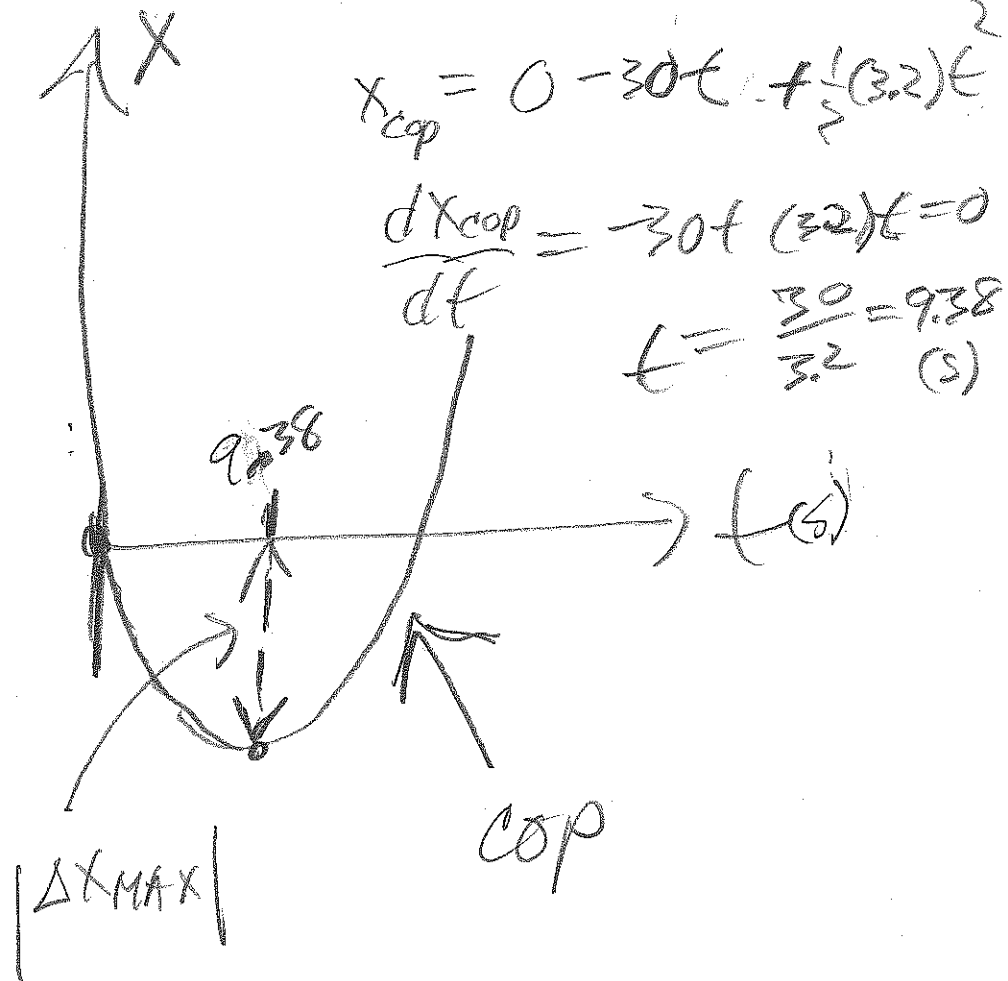 X
x_cop = 0 - 30t + 1/2 (3.2) t^2
dx_cop/dt = -30 + (3.2)t = 0
t = 30/3.2 = 9.38 (s)
9.38
t (s)
cop
|ΔX_MAX|